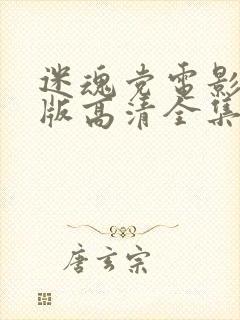 迷魂党电影
版高清全集
唐玄宗